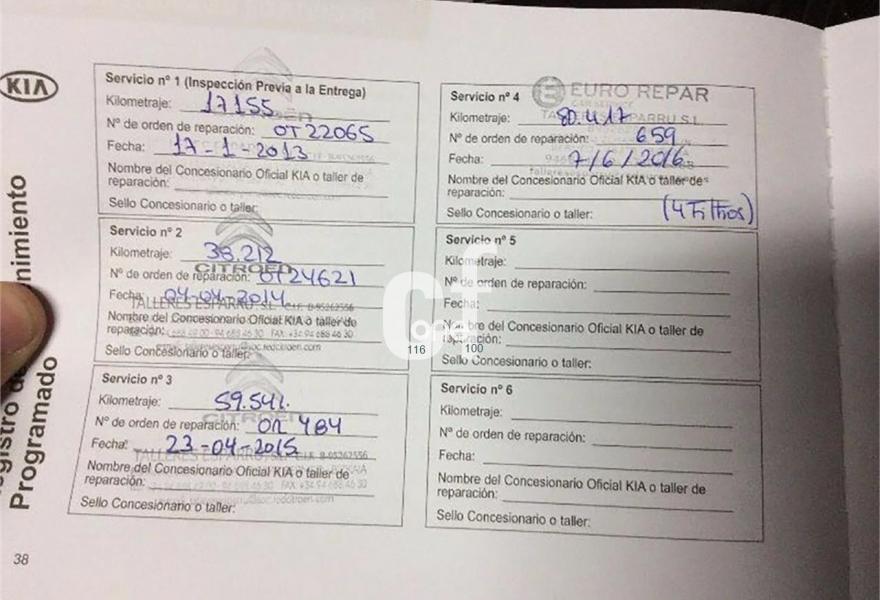 KIA
Servicio nº 1 (Inspección Previa a la Entrega)
Kilometraje: 17155
Nº de orden de reparación: OT 22065
Fecha: 17-1-2013
Nombre del Concesionario Oficial KIA o taller de
reparación:
Sello Concesionario o taller:
Servicio nº 2
Kilometraje: 38.212
CITROËN
Nº de orden de reparación: OT24621
Fecha: 04-04-2014
TALLERES ESPARRU, S.L. C.I.F. B-95262556
Nombre del Concesionario Oficial KIA o taller de
reparación:
Sello Concesionario o taller:
Servicio nº 3
Kilometraje: 59.541.
CITROËN
Nº de orden de reparación: OR 484
Fecha: 23-04-2015
TALLERES ESPARRU, S.L. C.I.F. B-95262556
Nombre del Concesionario Oficial KIA o taller de
reparación:
Sello Concesionario o taller:
EURO REPAR
Servicio nº 4
Kilometraje: 80.417
Nº de orden de reparación: 659
Fecha: 7/6/2016
Nombre del Concesionario Oficial KIA o taller de
reparación:
Sello Concesionario o taller: (4 Filtros)
Servicio nº 5
Kilometraje:
Nº de orden de reparación:
Fecha:
Nombre del Concesionario Oficial KIA o taller de
reparación:
Sello Concesionario o taller:
Servicio nº 6
Kilometraje:
Nº de orden de reparación:
Fecha:
Nombre del Concesionario Oficial KIA o taller de
reparación:
Sello Concesionario o taller:
Programado
38
cf
116 100